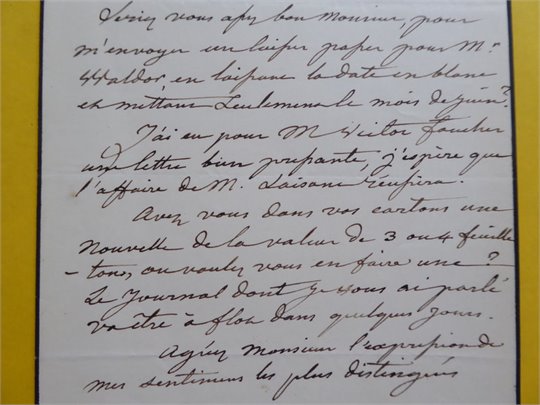 Seriez vous assez bon Monsieur, pour
m'envoyer un laisser passer pour Mr
Waldor, en laissant la date en blanc
et mettant seulement le mois de juin ?
J'ai eu pour M Victor Foucher
une lettre bien pressante, j'espère que
l'affaire de M. Laisané réussira.
Avez vous dans vos cartons une
nouvelle de la valeur de 3 ou 4 feuille
-tons, ou voulez vous en faire une ?
Le Journal dont je vous ai parlé
va être à flot dans quelques jours.
Agréez Monsieur l'expression de
mes sentimens les plus distingués